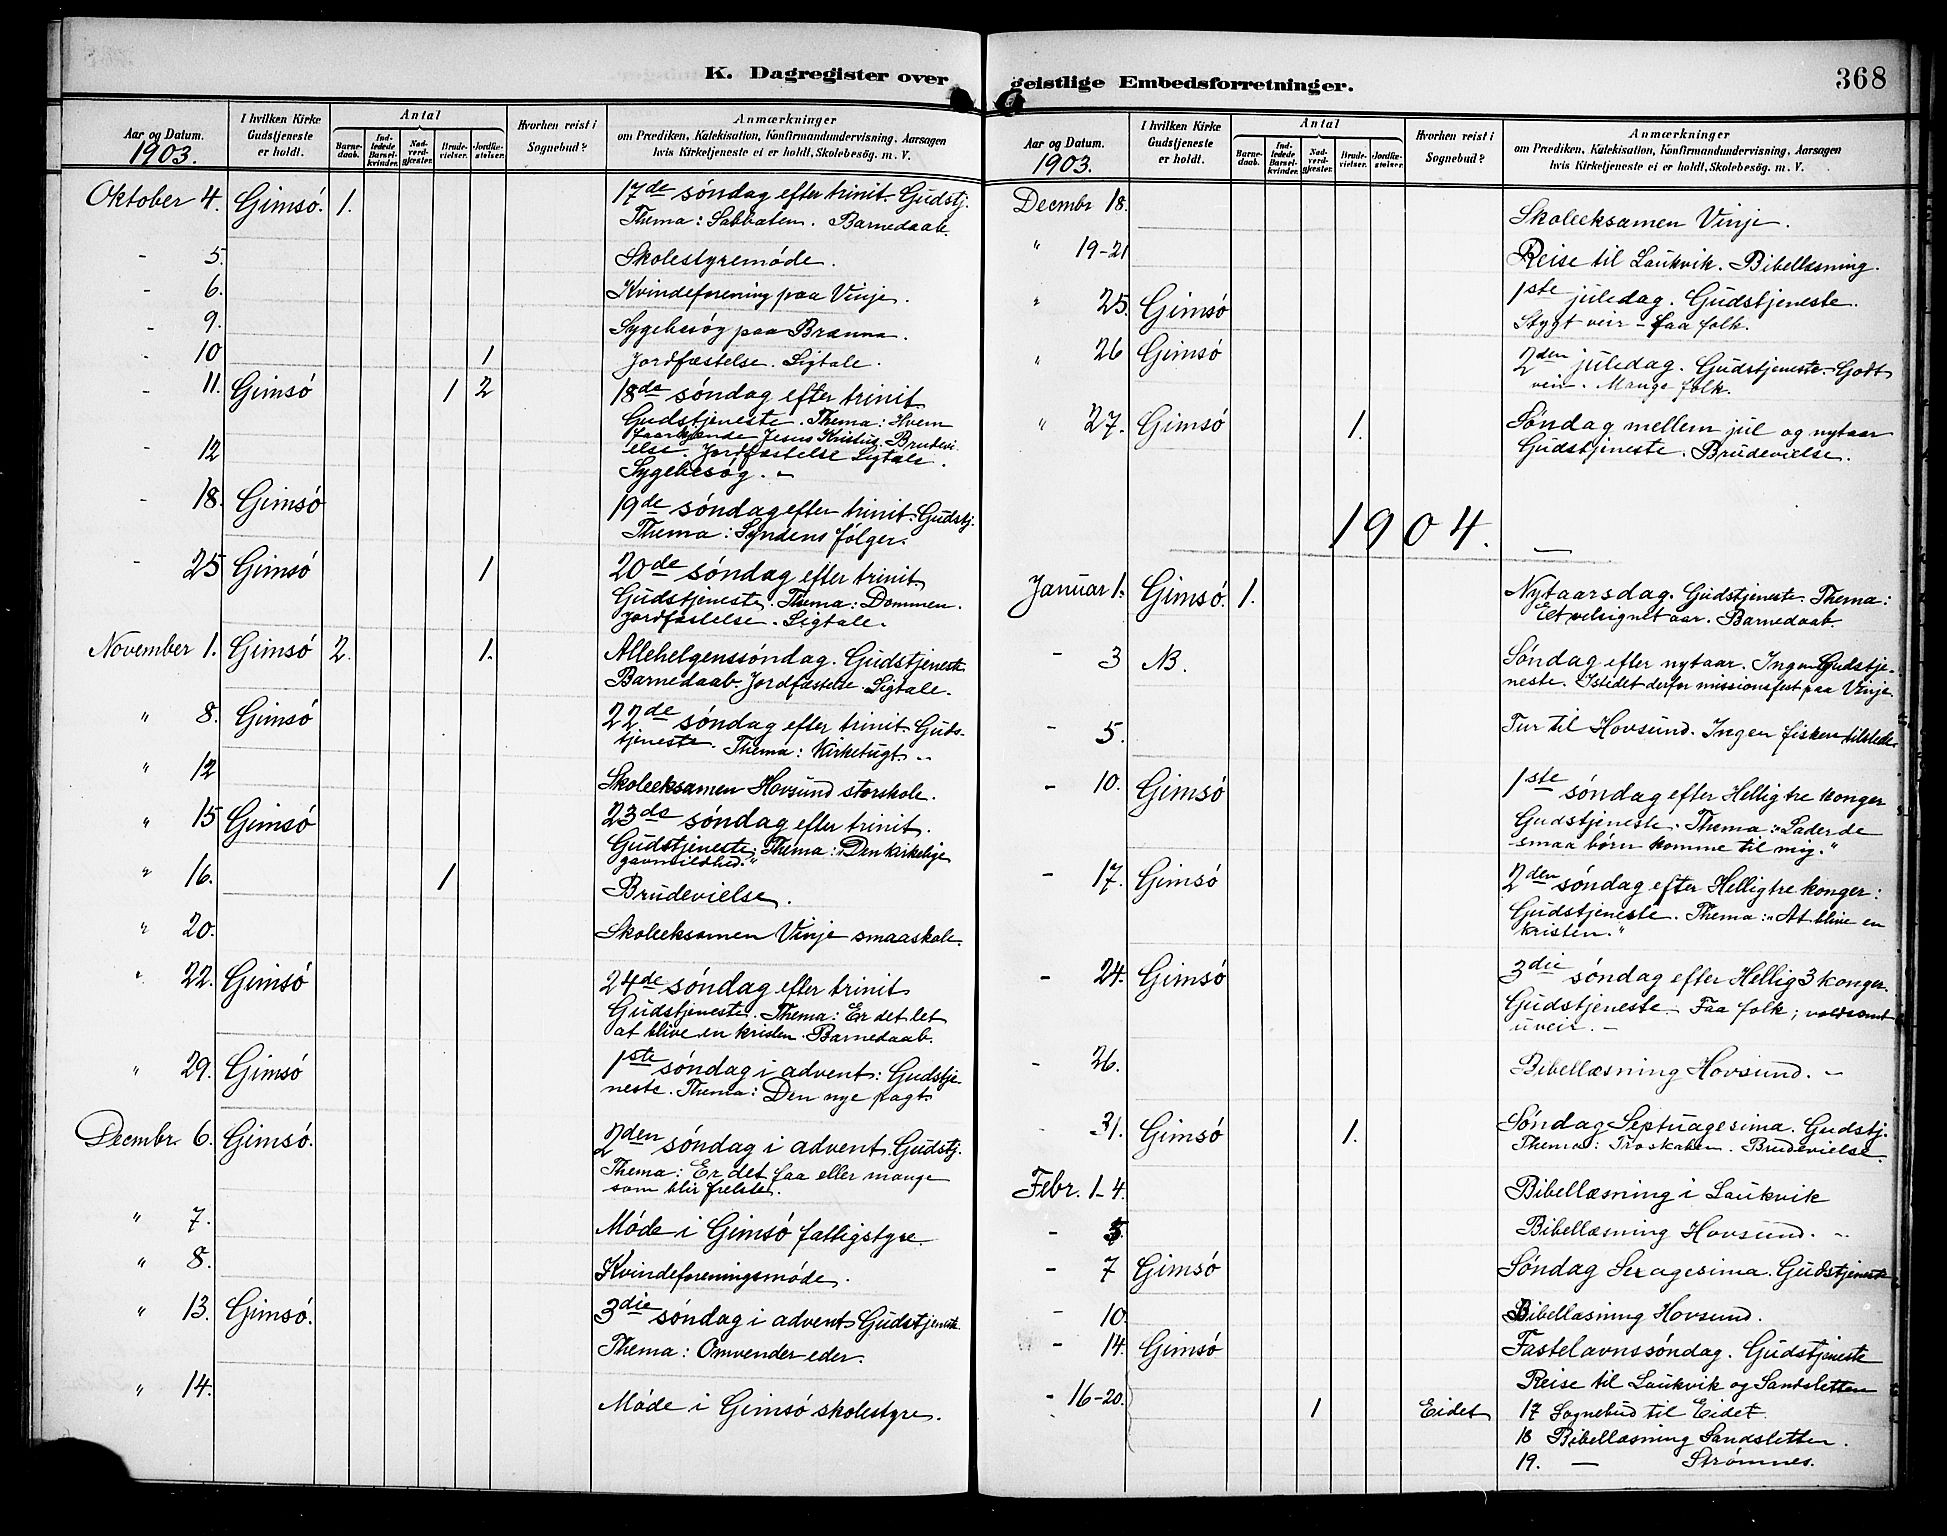 K. Dagregister over
Aar og Datum.
1903.
I hvilken Kirke
Gudstjeneste
er holdt.
Antal
Barne-
daab.
Ind-
ledede
Barsel-
kvinder.
Nad-
verd-
gjester.
Brude-
vielser.
Jordfæ-
stelser.
Hvorhen reist i
Sognebud?
Anmærkninger
om Prædiken, Katekisation, Konfirmandundervisning, Aarsagen
hvis Kirketjeneste ei er holdt, Skolebesøg. m. V.
Oktober 4. Gimsó. 1. 17de søndag efter trinit. Gudstj.
Thema: Sabbaten. Barnedaab.
- 5. Skolestyremóde.
- 6. Kvindeforening paa Vinje.
- 9. Sygebesóg paa Brænna.
- 10 1 Jordfæstelse. Ligtale.
- 11. Gimsó 1 2 18de søndag efter trinit
Gudstjeneste. Thema: Hvem
Jesus Kristus. Brudevi
else. Jordfæstelse Ligtale.
- 12 Sygebesóg. -
- 18. Gimsó 19de søndag efter trinit. Gudstj.
Thema: Syndens fólger.
- 25 Gimsó 1 20de søndag efter trinit
Gudstjeneste. Thema: Dommen.
Jordfæstelse. Ligtale.
November 1. Gimsó 2. 1. Allehelgenssóndag. Gudstjeneste
Barnedaab. Jordfæstelse. Ligtale.
" 8. Gimsó 22de søndag efter trinit. Guds-
tjeneste. Thema: Kirketugt. -
" 12 Skoleeksamen Hovsund storskole.
" 15 Gimsó 23de søndag efter trinit.
Gudstjeneste. Thema: "Den kirkelige
gavmildhed."
" 16. 1 Brudevielse.
" 20. Skoleeksamen Vinje smaaskole.
" 22. Gimsó 24de søndag efter trinit
Gudstjeneste. Thema: Er det let
at blive en kristen. Barnedaab.
" 29. Gimsó 1ste søndag i advent: Gudstje
neste. Thema: Den nye pagt.
Decmbr. 6. Gimsó. 2den søndag i advent. Gudstj.
Thema: Er det faa eller mange
som blir frelste.
" 7. Móde i Gimsó fattigstyre.
" 8. Kvindeforeningsmóde.
" 13. Gimsó. 3die søndag i advent Gudstjeneste.
Thema: Omvender eder.
" 14. Móde i Gimsó skolestyre.
geistlige Embedsforretninger.
368
Aar og Datum.
1903.
I hvilken Kirke
Gudstjeneste
er holdt.
Antal
Barne-
daab.
Ind-
ledede
Barsel-
kvinder.
Nad-
verd-
gjester.
Brude-
vielser.
Jordfæ-
stelser.
Hvorhen reist i
Sognebud?
Anmærkninger
om Prædiken, Katekisation, Konfirmandundervisning, Aarsagen
hvis Kirketjeneste ei er holdt, Skolebesøg. m. V.
Decmbr 18. Skoleeksamen Vinje.
" 19-21 Reise til Laukvik. Bibellæsning.
" 25 Gimsó 1ste juledag. Gudstjeneste.
Stygt veir - faa folk.
" 26 Gimsó 2den juledag. Gudstjeneste. Godt
veir. Mange folk.
" 27. Gimsó 1. Søndag mellem jul og nytaar
Gudstjeneste. Brudevielse.
1904.
Januar 1. Gimsó. 1. Nytaarsdag. Gudstjeneste. Thema:
Et velsignet aar. Barnedaab.
- 3 NB. Søndag efter nytaar. Ingen Gudstje-
neste. Istedet derfor missionsfest paa Vinje
- 5. Tur til Hovsund. Ingen fiskere tilstede.
- 10. Gimsó 1ste søndag efter Hellig tre konger
Gudstjeneste. Thema: "Lader de
smaa børn komme til mig."
- 17. Gimsó 2den søndag efter Hellig tre konger:
Gudstjeneste. Thema: "At blive en
kristen."
- 24. Gimsó 3die søndag efter Hellig 3 konger.
Gudstjeneste. Faa folk; voldsomt
uveir. -
- 26. Bibellæsning Hovsund. -
- 31. Gimsó 1. Søndag Septuagesima. Gudstj.
Thema: Troskaben. Brudevielse.
Febr. 1-4. Bibellæsning i Laukvik
- 5. Bibellæsning Hovsund. -
- 7 Gimsó Søndag Sexagesima. Gudstjeneste
- 10. Bibellæsning Hovsund.
- 14. Gimsó Fastelavnssóndag. Gudstjeneste
- 16-20. Reise til Laukvik og Sandsletten
1 Eidet 17 Sognebud til Eidet.
18 Bibellæsning Sandsletten.
19. — Strømnes.